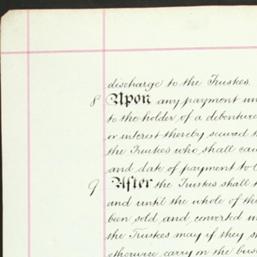 discharge to the Trustees
8 Upon any payment un
to the holder of a debenture
or interest thereby secured t
the Trustees who shall cau
and date of payment to b
9 After the Trustees shall h
and until the whole of the
been sold and converted in
the Trustees may if they s
otherwise carry on the bus